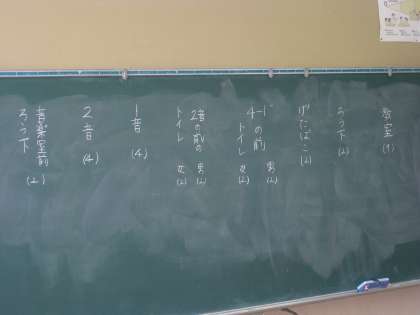 教室(9)
ろう下(2)
げたばこ(2)
4-1の前
トイレ
男(2)
女(2)
2音の前の
トイレ
男(2)
女(2)
1音(4)
2音(4)
音楽室前
ろう下(2)